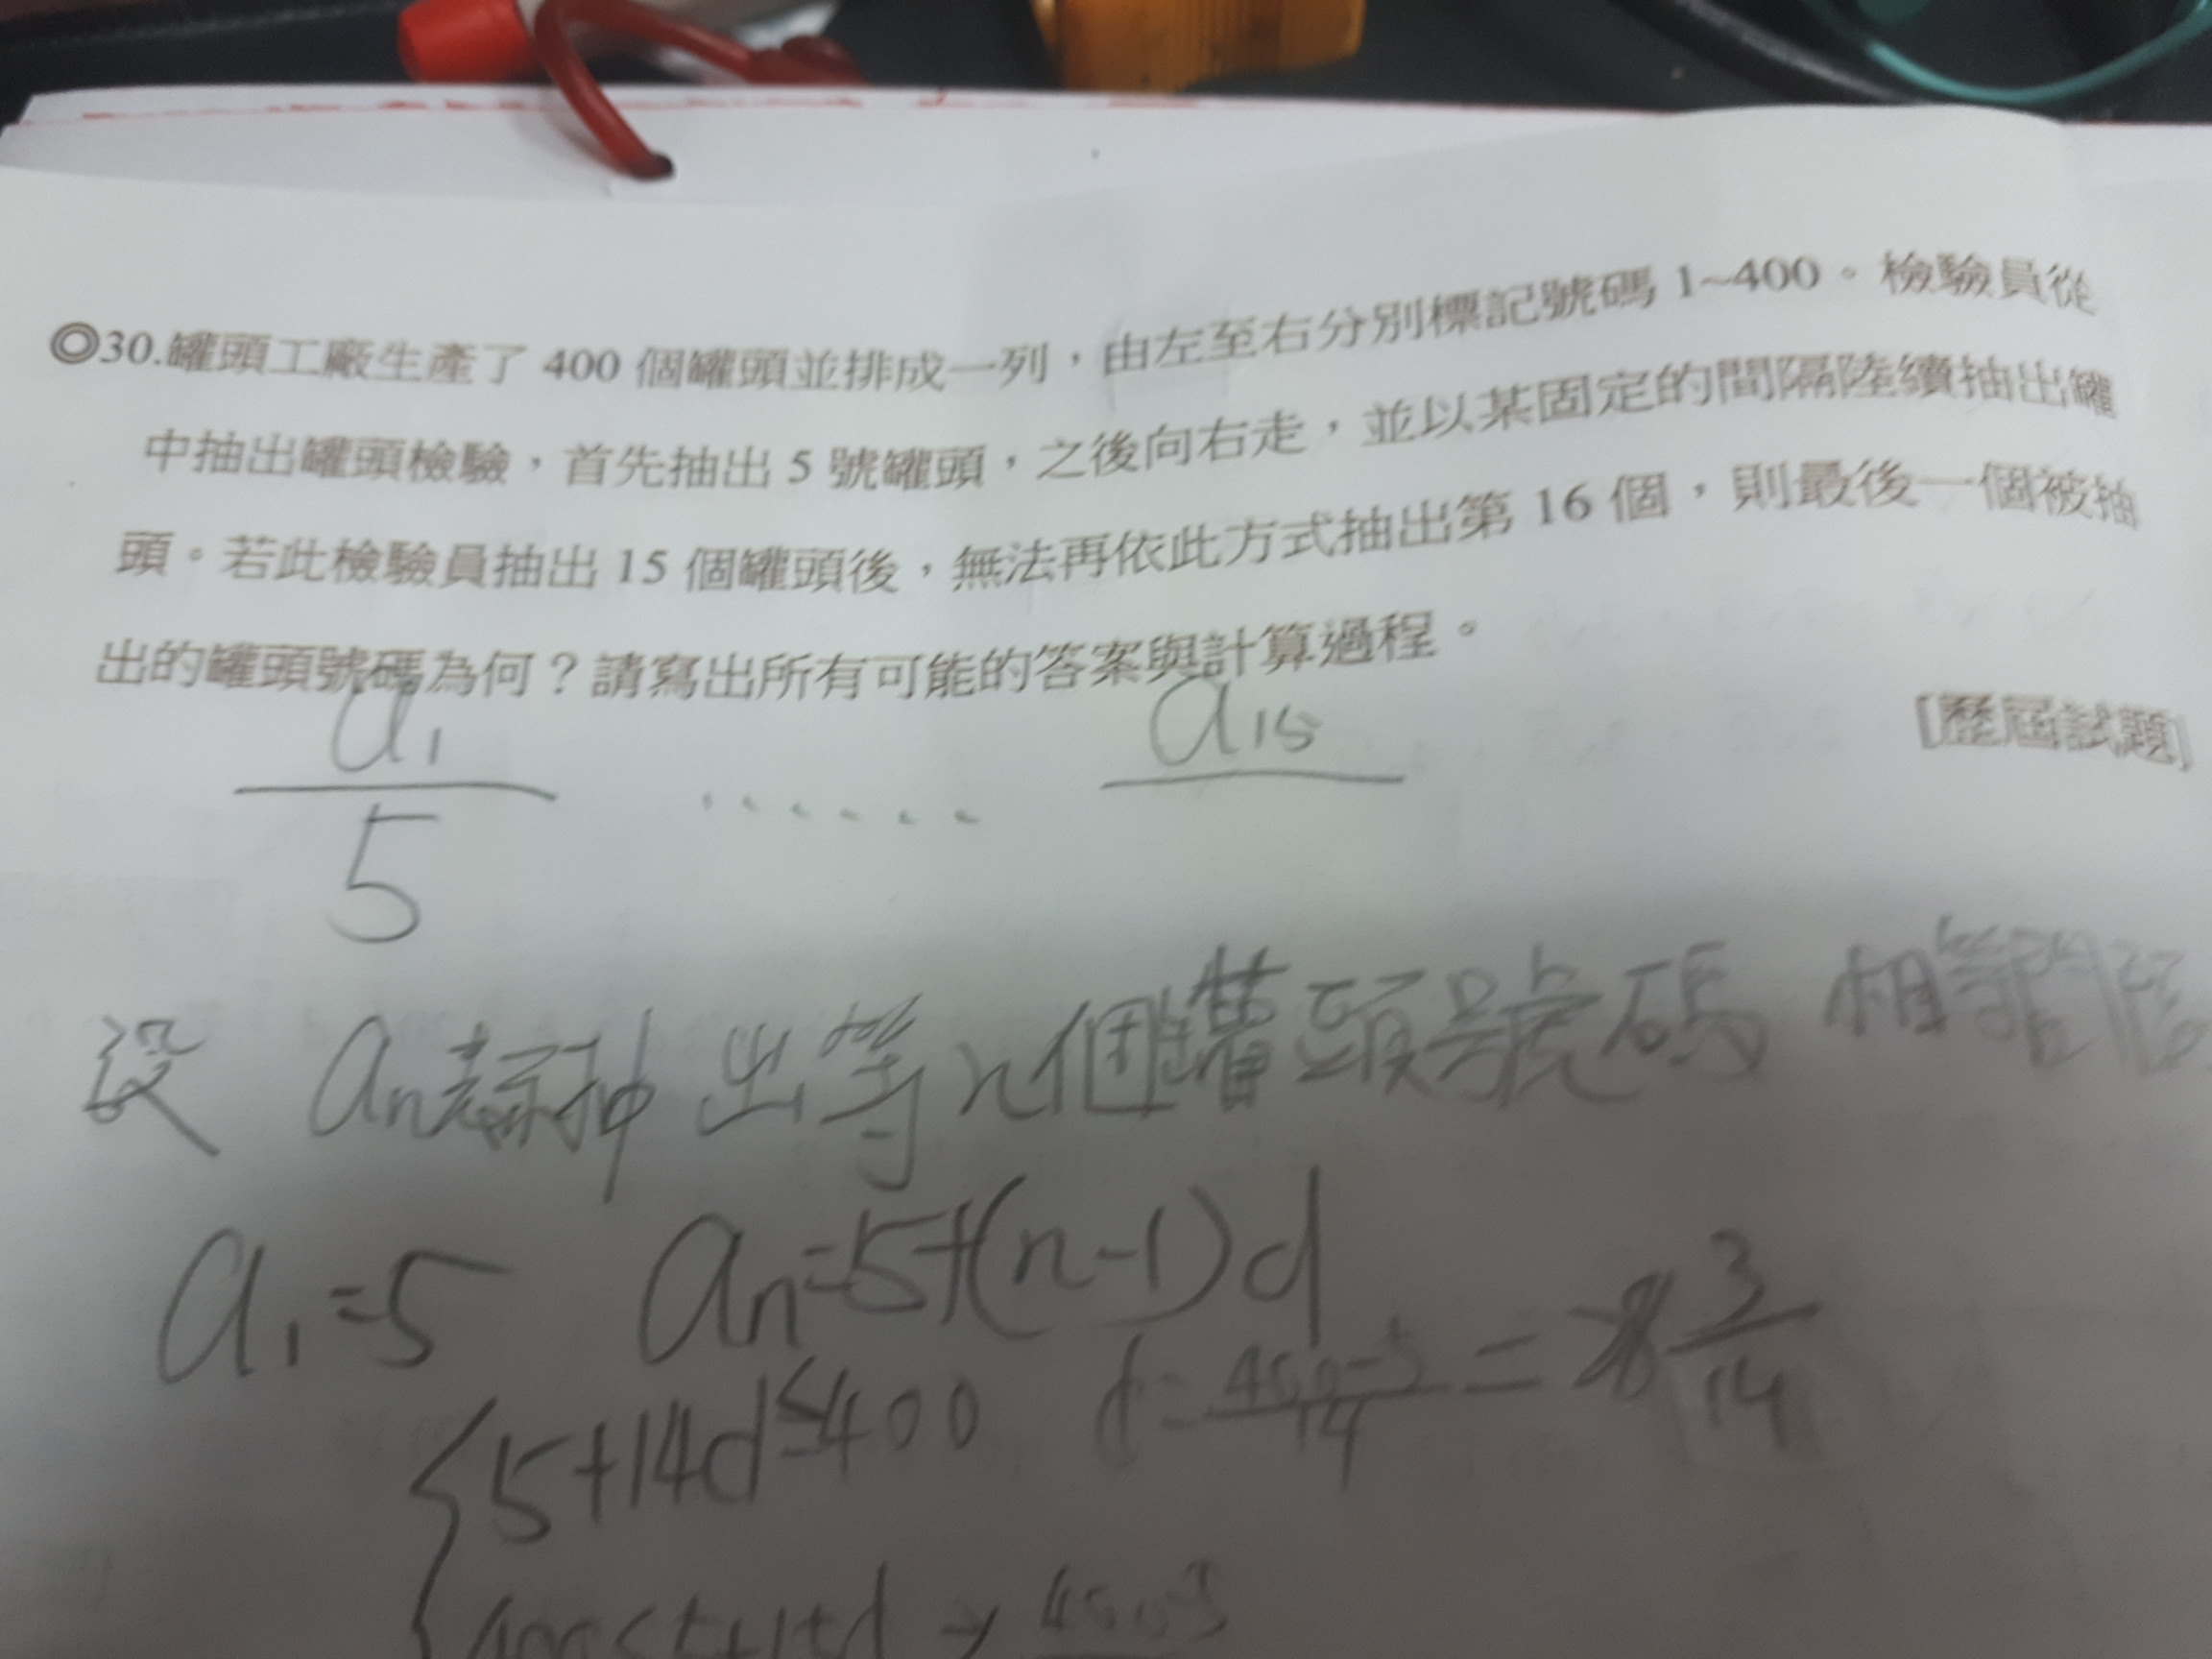 ◎30.罐頭工廠生產了 400 個罐頭並排成一列，由左至右分別標記號碼 1~400。檢驗員從
中抽出罐頭檢驗，首先抽出 5 號罐頭，之後向右走，並以某固定的間隔陸續抽出罐
頭。若此檢驗員抽出 15 個罐頭後，無法再依此方式抽出第 16 個，則最後一個被抽
出的罐頭號碼為何？請寫出所有可能的答案與計算過程。
[歷屆試題]
a₁ ...... a₁₅
5
設 aₙ表示抽出等n個罐頭號碼 相等間
a₁=5 aₙ=5+(n-1)d
5+14d≤400 d= =